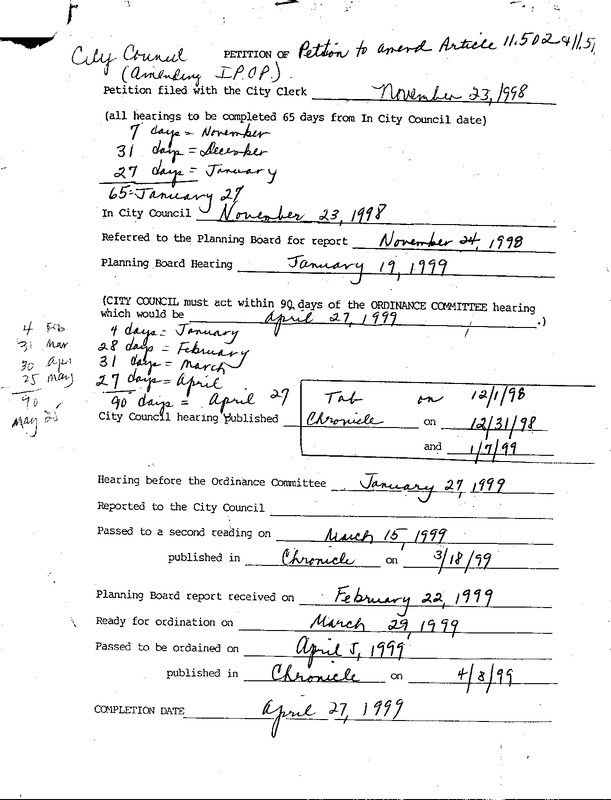 City Council PETITION OF Petition to amend Article 11.502 & 11.51
(Amending I.P.O.P.)
Petition filed with the City Clerk November 23, 1998
(all hearings to be completed 65 days from In City Council date)
7 days = November
31 days = December
27 days = January
65 = January 27
In City Council November 23, 1998
Referred to the Planning Board for report November 24, 1998
Planning Board Hearing January 19, 1999
(CITY COUNCIL must act within 90 days of the ORDINANCE COMMITTEE hearing
which would be April 27, 1999 .)
4 days = January
28 days = February
31 days = March
27 days = April
90 days = April 27
4 Feb
31 Mar
30 Apr
25 May
90
May 25
Tab on 12/1/98
City Council hearing Published Chronicle on 12/31/98
and 1/7/99
Hearing before the Ordinance Committee January 27, 1999
Reported to the City Council
Passed to a second reading on March 15, 1999
published in Chronicle on 3/18/99
Planning Board report received on February 22, 1999
Ready for ordination on March 29, 1999
Passed to be ordained on April 5, 1999
published in Chronicle on 4/8/99
COMPLETION DATE April 27, 1999